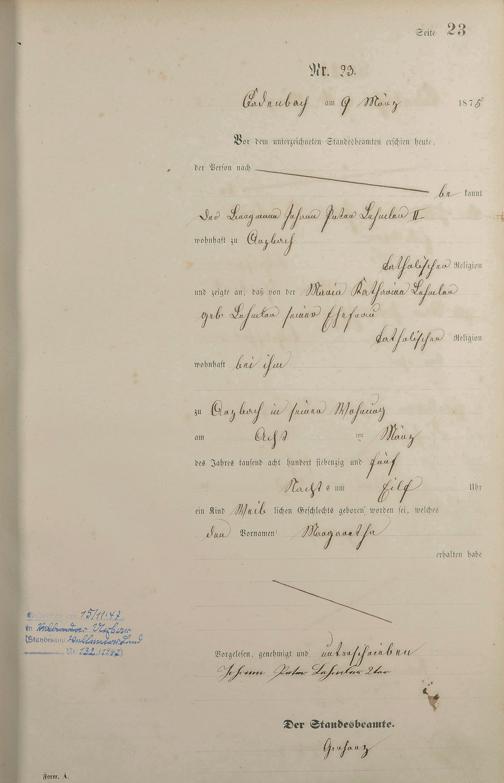 Seite 23
Nr. 23.
am 9 März 1875
Vor dem unterzeichneten Standesbeamten erschien heute,
der Person nach
be kannt
der Bergmann Johann Peter II
wohnhaft zu
katholischer Religion
und zeigte an, daß von der Maria Katharina
geb seiner Ehefrau
katholischer Religion
wohnhaft bei ihm
zu in seiner Wohnung
am Acht ten März
des Jahres tausend acht hundert siebenzig und fünf
Nachts um Eilf Uhr
ein Kind Weib lichen Geschlechts geboren worden sei, welches
den Vornamen Margaretha
erhalten habe
15/11.47
in
(Standesamt
Nr. 132
Vorgelesen, genehmigt und unterschrieben
Johann Peter 2ter
Der Standesbeamte.
Form. A.